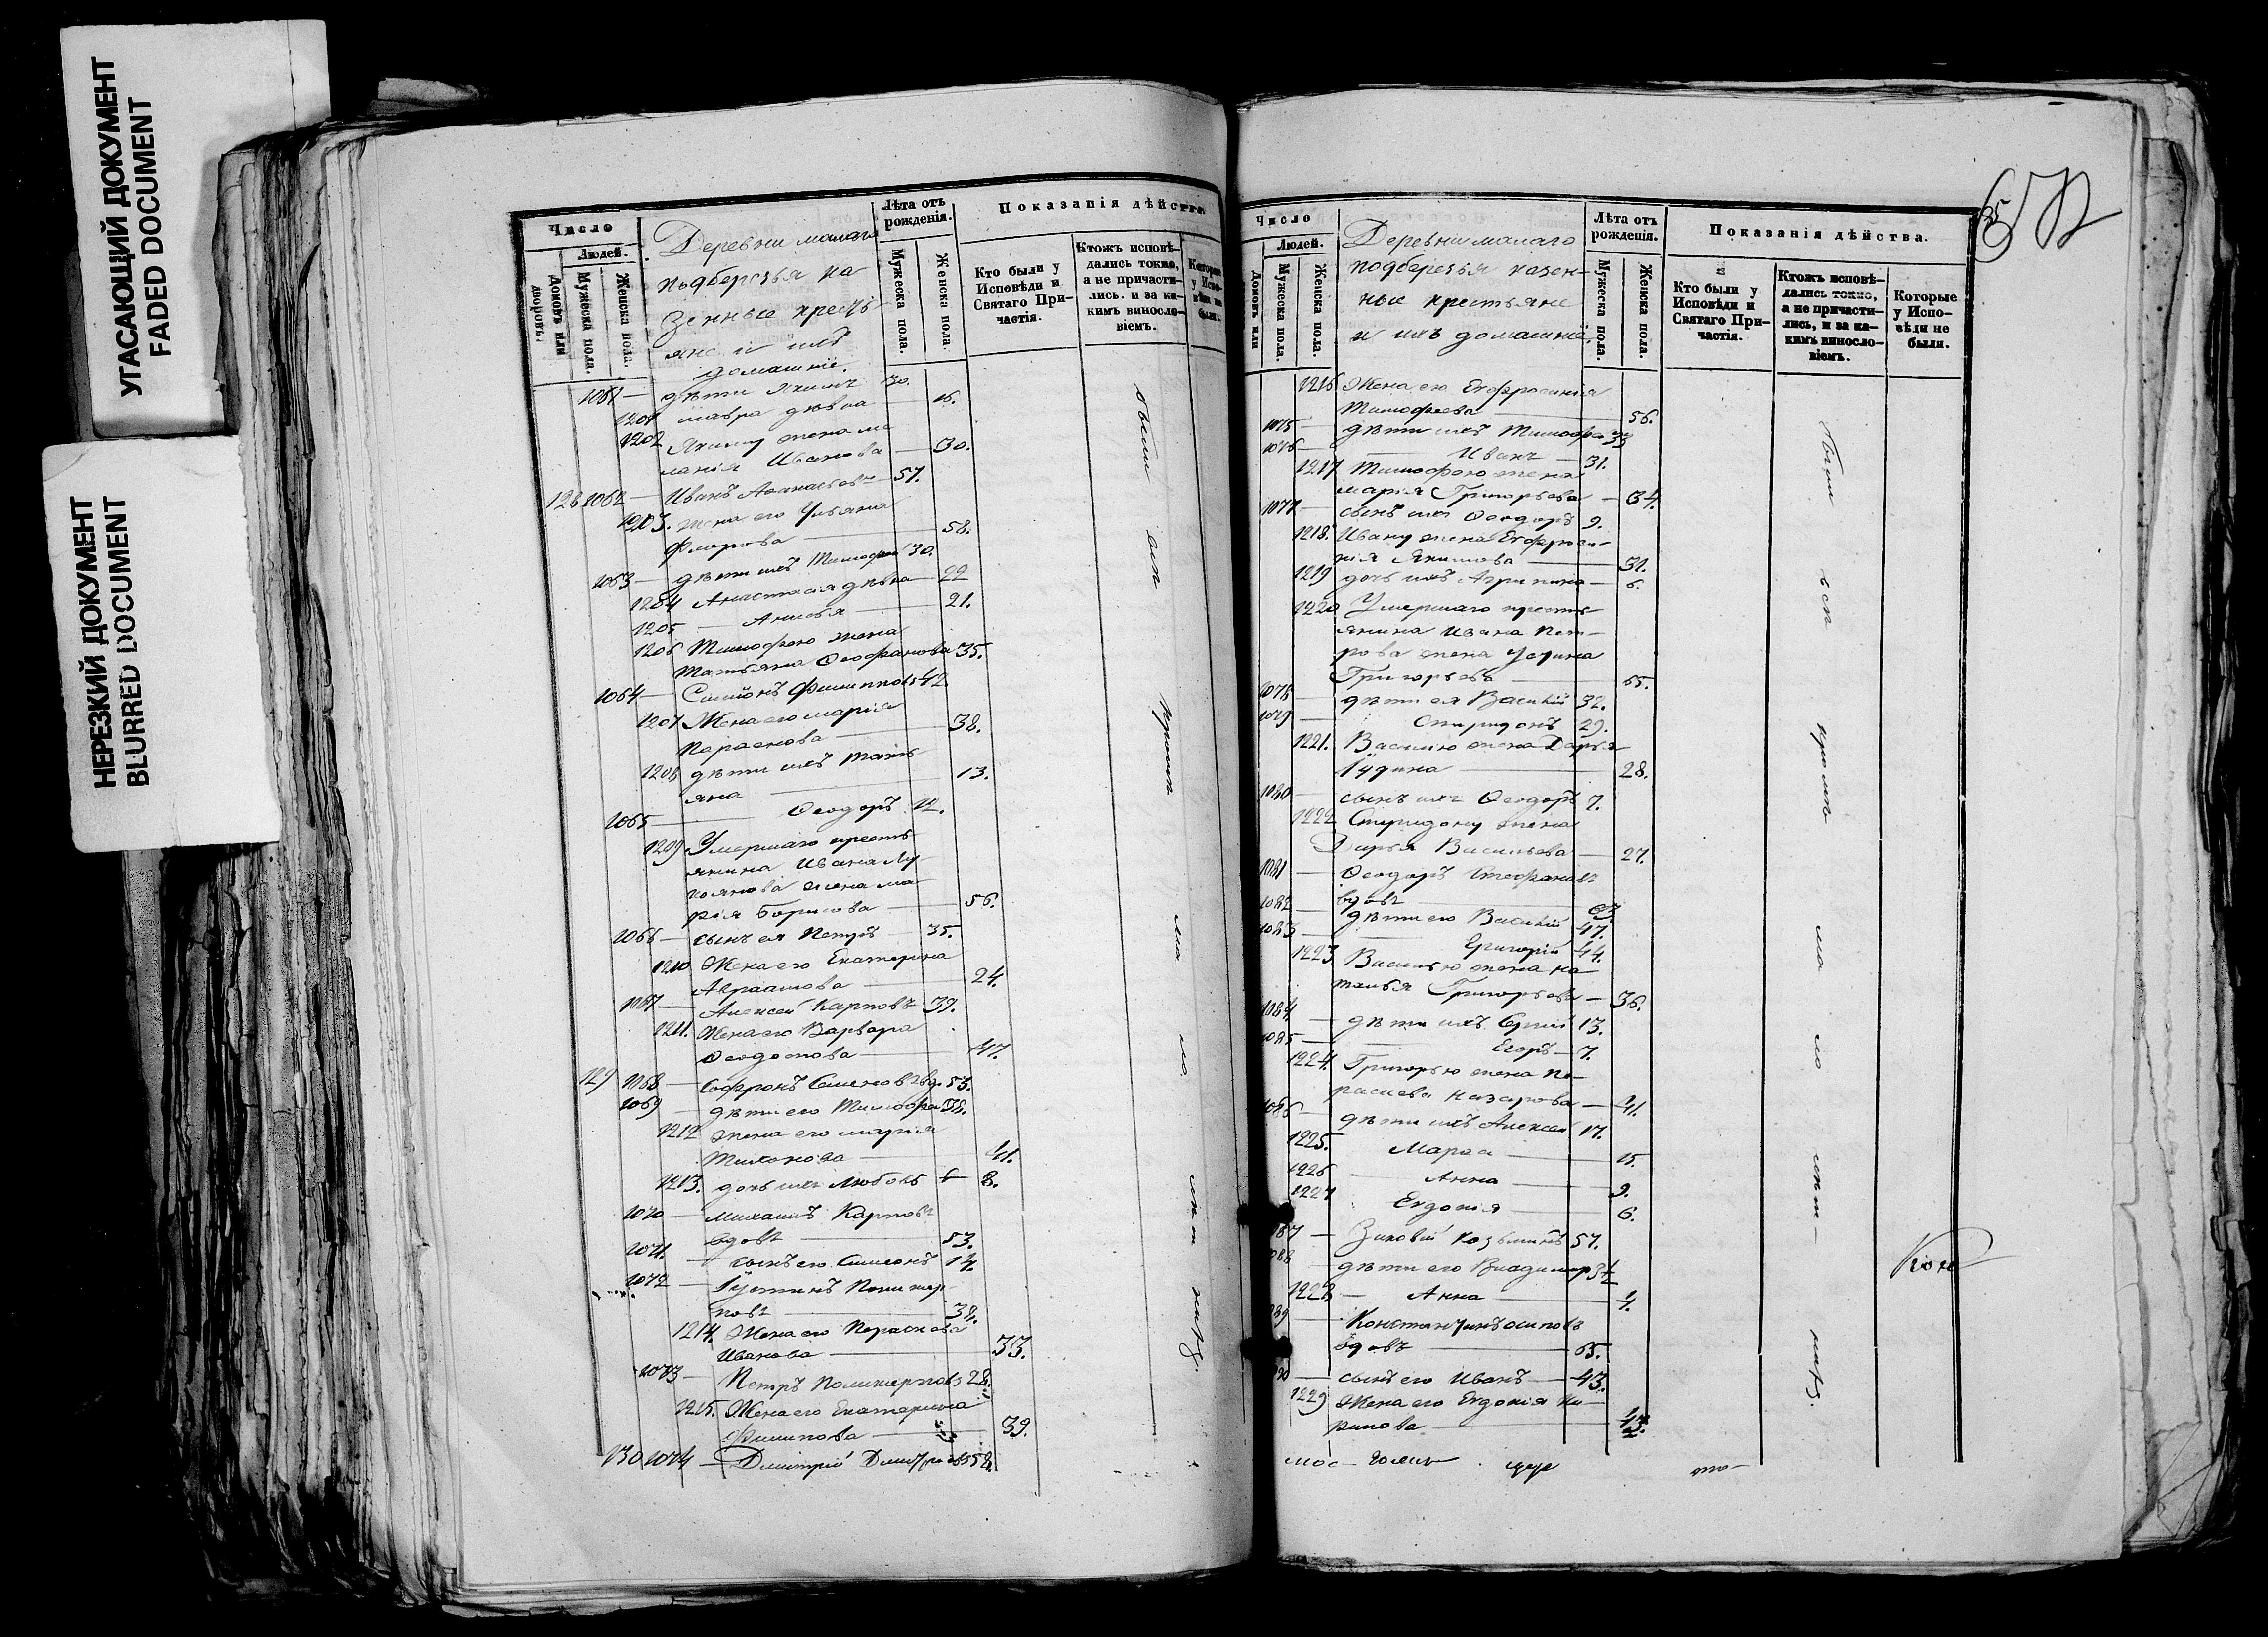 УГАСАЮЩИЙ ДОКУМЕНТ
FADED DOCUMENT
НЕРЕЗКИЙ ДОКУМЕНТ
BLURRED DOCUMENT
Число
Людей.
Домовъ или дворовъ.
Мужеска пола.
Женска пола.
Деревни малаго
подберезья ка
зенные кресть
яне и ихъ
домашніе.
Лѣта отъ рожденія.
Мужеска пола.
Женска пола.
Показанія дѣйства.
Кто были у Исповѣди и Святаго Причастія.
Ктожъ исповѣдались токмо, а не причастились. и за какимъ винословіемъ.
Которые у Исповѣди не были.
1061 — дѣти Якимъ 30.
1201 мавра дѣвка — 16.
1202 Якиму жена ме
ланія Иванова — 30.
128 1062 — Иванъ Аѳанасьевъ — 57.
1203. жена его Ульяна
Флорова — 58.
1063 — дѣти ихъ Тимофей 30.
1204 Анастасія дѣвка — 22
1205 — Анисья — 21.
1206 Тимофею жена
Татьяна Ѳеофанова 35.
1064 — Симіонъ Филипповъ 42.
1207 Жена его марія
Пораскова — 38.
1208 дѣти ихъ Тать
яна — 13.
1065 — Ѳеодоръ 12.
1209 Умершаго кресть
янина Ивана Лу
кьянова жена ма
рія Борисова — 56.
1066 — сынъ ея Петръ 35.
1210 Жена его Екатерина
Авраамова — 24.
1067 — Алексей Карповъ 39.
1211. Жена его Варвара
Ѳеодотова — 47.
129 1068 — Софронъ Семеновъ вд. 83.
1069 — дѣти его Тимофей 38.
1212 жена его марія
Тихонова — 41.
1213. дочь ихъ Любовь — 8.
1070 — михаилъ Карповъ
вдовъ — 53.
1071. — сынъ его Симіонъ 14.
1072 — Іустинъ Поликар
повъ — 38.
1214. Жена его Пораскова
Иванова — 33.
1073 — Петръ Поликарповъ 28.
1215. Жена его Екатерина
Филипова — 39.
130 1074 — Дмитрій Дмитріевъ 58.
Число
Людей.
Домовъ или
Мужеска пола.
Женска пола.
Деревни малаго
подберезья казен-
ные крестьяне
и ихъ домашніе.
Лѣта отъ рожденія.
Мужеска пола.
Женска пола.
Показанія дѣйства.
Кто были у Исповѣди и Святаго Причастія.
Ктожъ исповѣдались токмо, а не причастились, и за какимъ винословіемъ.
Которые у Исповѣди не были.
1216 Жена его Евфросинія
Тимофеева — 56.
1075 — дѣти ихъ Тимофей 33
1076 — Иванъ — 31.
1217 Тимофею жена
марія Григорьева — 34.
1077 — сынъ ихъ Ѳеодоръ 9.
1218. Ивану жена Евфроси-
нія Якимова — 31.
1219 дочь ихъ Агрипина — 6.
1220 Умершаго кресть
янина Ивана Пет-
рова жена Устина
Григорьева — 65.
1078 — дѣти ея Василій 32.
1079 — Спиридонъ 29.
1221. Василію жена Дарья
Іудина — 28.
1080 — сынъ ихъ Ѳеодоръ 7.
1222 Спиридону жена
Дарья Васильева — 27.
1081 — Ѳеодоръ Стефановъ
вдовъ — 63
1082 — дѣти его Василій 47.
1083 — Григорій 44.
1223 Василью жена на
талья Григорьева — 36.
1084 — дѣти ихъ Сергій 13.
1085 — Егоръ — 7.
1224. Григорью жена по-
раскева Назарова — 41.
1086 — дѣти ихъ Алексей 17.
1225. Марѳа — 15.
1226 — Анна — 9.
1227 Евдокія — 6.
87 — Зиновій Козьминъ 57.
88 — дѣти его Владимир
1228 — Анна — 4.
89 — Константинъ осиповъ
вдовъ — 65.
90 — сынъ его Иванъ — 43.
1229 Жена его Евдокія Ки-
рилова — 43.